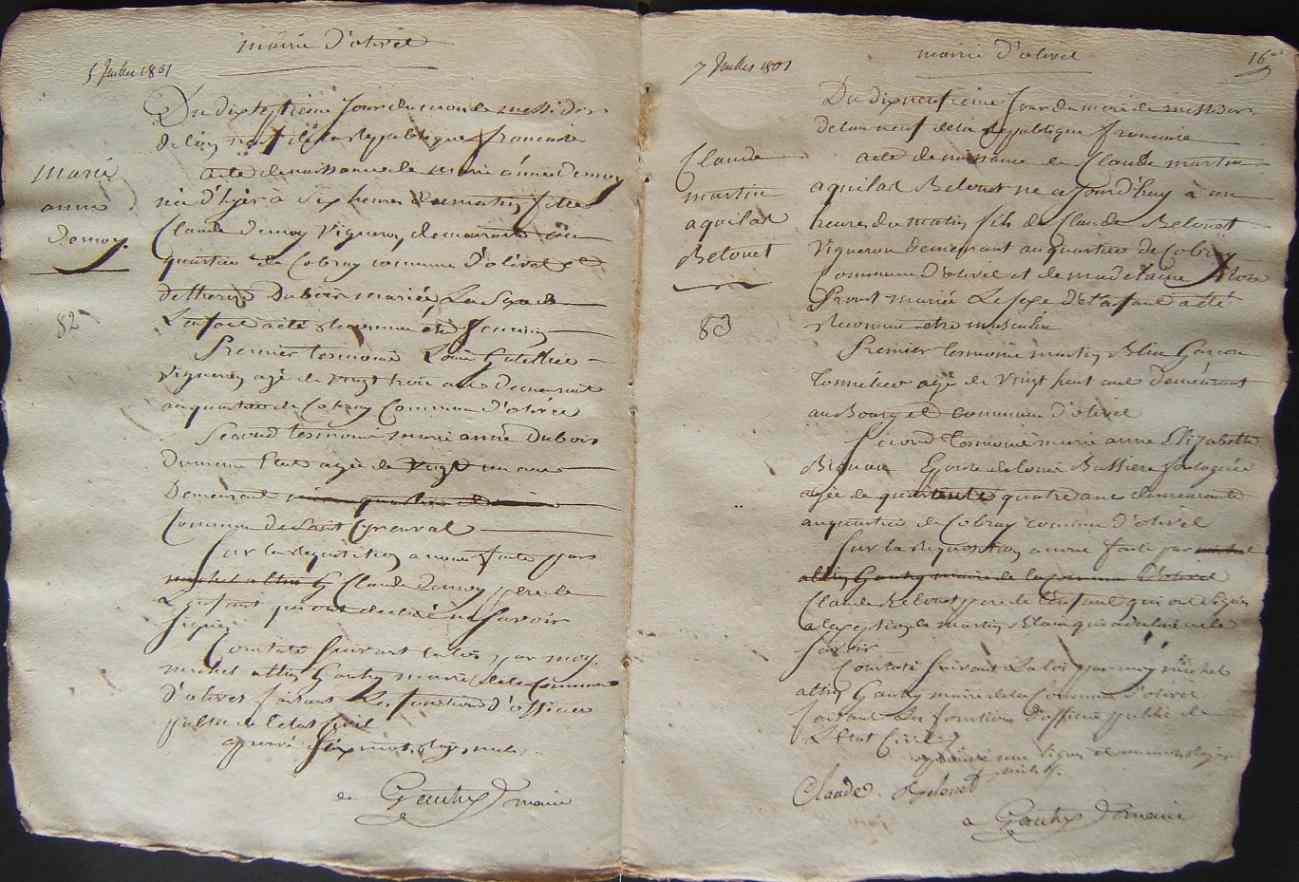 mairie d'olivet
5 Juillet 1801
Du dixseptieme jour du mois de messidor
de l'an neuf de la republique francaise
marie
anne
demoy
82
acte de naissance de marie anne demoy
née d'hyer à six heures du matin fille
Claude demoy vigneron demeurant au
quartier de Cobray commune d'olivet et
de therese Dubois mariés Le sexe de
L'enfant a été reconnu etre feminin
Premier temoin Louis
vigneron agé de vingt trois ans demeurant
au quartier de Cobray Commune d'olivet
Second temoin marie anne Dubois
agée de vingt un ans
Demeurant
Commune de Saint
Sur la requisition a nous faite par
Claude Demoy pere de
L'enfant qui ont declaré ne savoir
signer
Constaté suivant la loi par moy
michel altin Gautry maire de la commune
d'olivet faisant les fonctions d'officier
public de l'etat civil
aprouvé six mots rayés nuls
Gautry maire
7 Juillet 1801
mairie d'olivet
16
Du dixneufieme jour du mois de messidor
de l'an neuf de la republique francaise
Claude
martin
aquilas
Belouet
83
acte de naissance de Claude martin
aquilas Belouet né ce jourd'huy à une
heure du matin fils de Claude Belouet
vigneron demeurant au quartier de Cobray
Commune d'olivet et de madelaine
mariés Le sexe de l'enfant a été
reconnu etre masculin
Premier temoin martin Blain Garcon
Tonnelier agé de vingt huit ans demeurant
au Bourg et commune d'olivet
Second temoin marie anne Elizabeth
Epouse de louis Bussiere
agée de quarante quatre ans demeurante
au quartier de Cobray commune d'olivet
Sur la requisition a nous faite par michel
altin Gautry maire de la commune d'olivet
Claude Belouet pere de l'enfant qui ont signé
a l'exception de martin Blain qui a declaré ne le
savoir
Constaté suivant La loi par moy michel
altin Gautry maire de la Commune d'olivet
faisant les fonctions d'officier public de
L'Etat Civil
Claude Belouet
Gautry maire